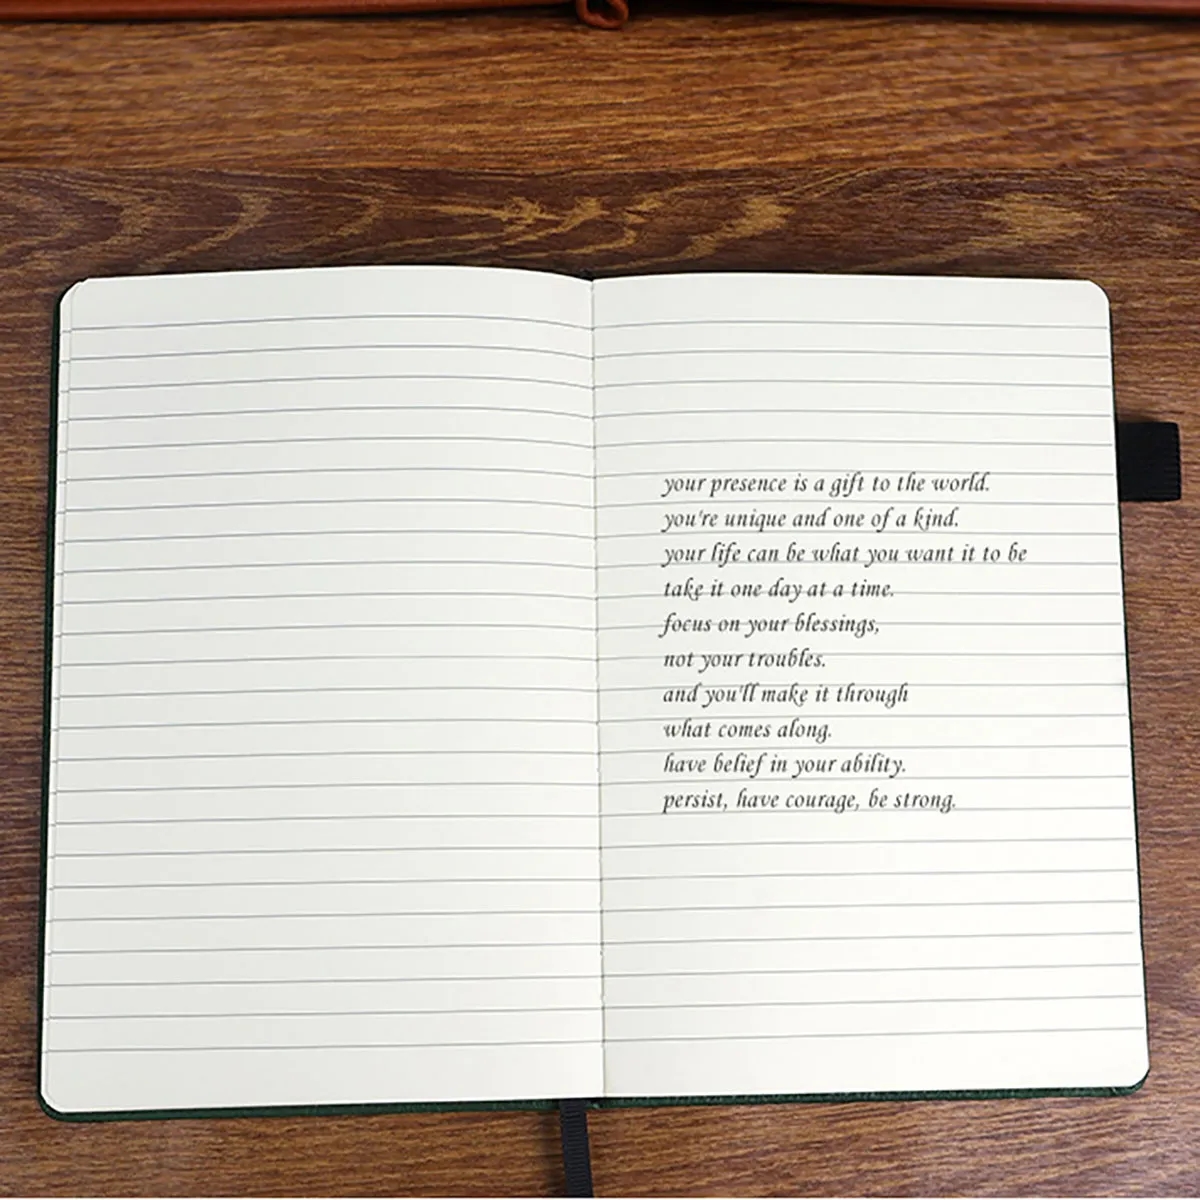 your presence is a gift to the world.
you're unique and one of a kind.
your life can be what you want it to be
take it one day at a time.
focus on your blessings,
not your troubles.
and you'll make it through
what comes along.
have belief in your ability.
persist, have courage, be strong.